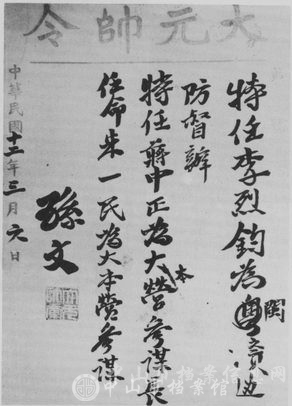 大元帥令
特任李烈鈞為閩贛邊
防督辦
特任蔣中正為大本營參謀長
任命朱一民為大本營參謀
孫文
中華民國十二年三月日
中山市檔案館